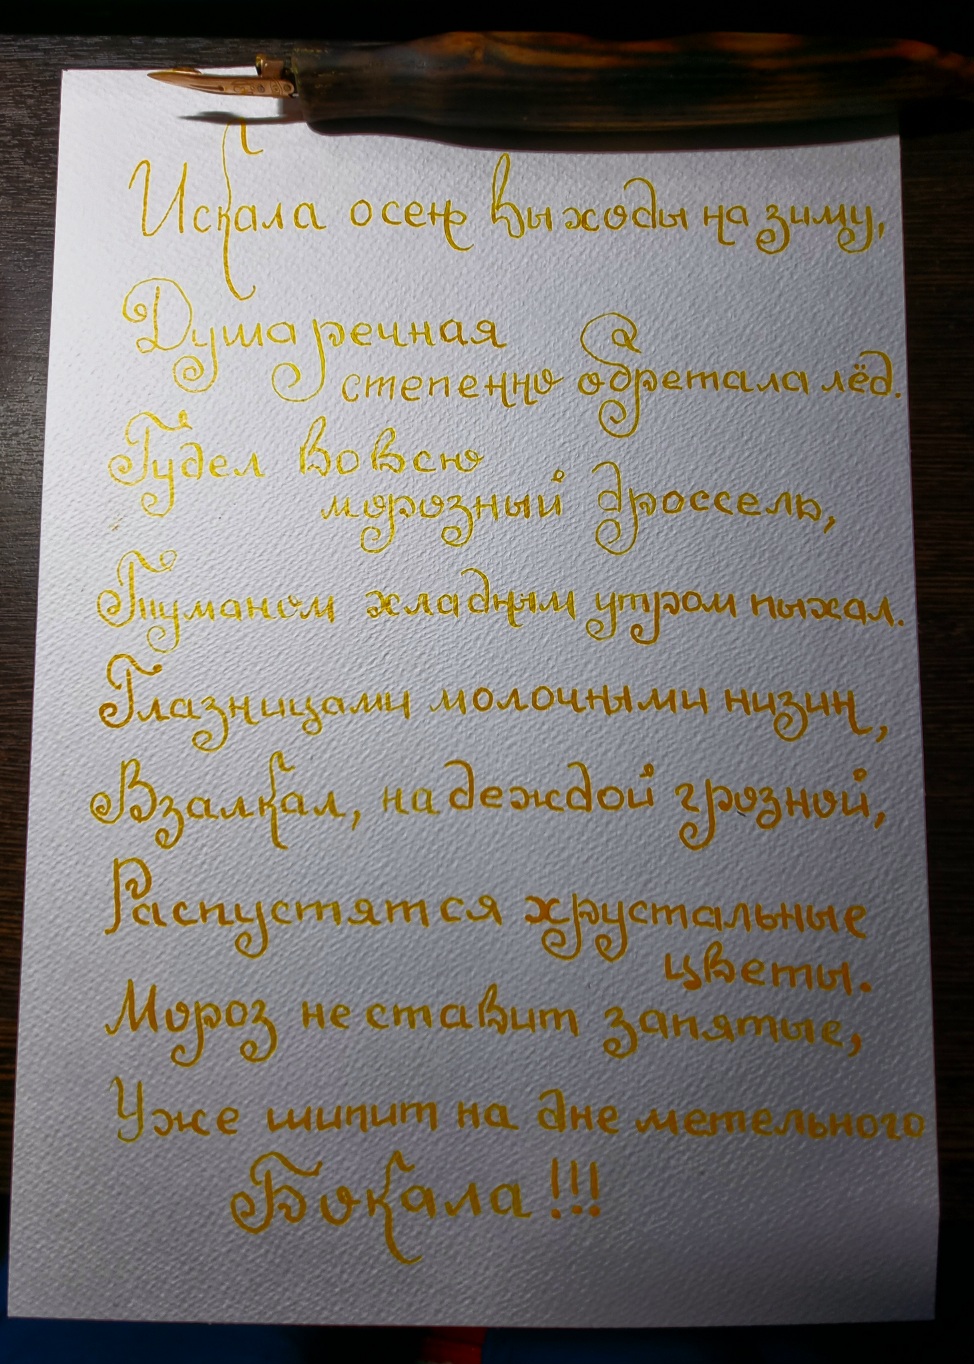 Искала осень выходы на зиму,
Душа речная
степенно обретала лёд.
Гудел вовсю
морозный дроссель,
Туманом хладным утром пыхал.
Глазницами молочными низин,
Взалкал, надеждой грозной,
Распустятся хрустальные
цветы.
Мороз не ставит запятые,
Уже шипит на дне метельного
Бокала!!!